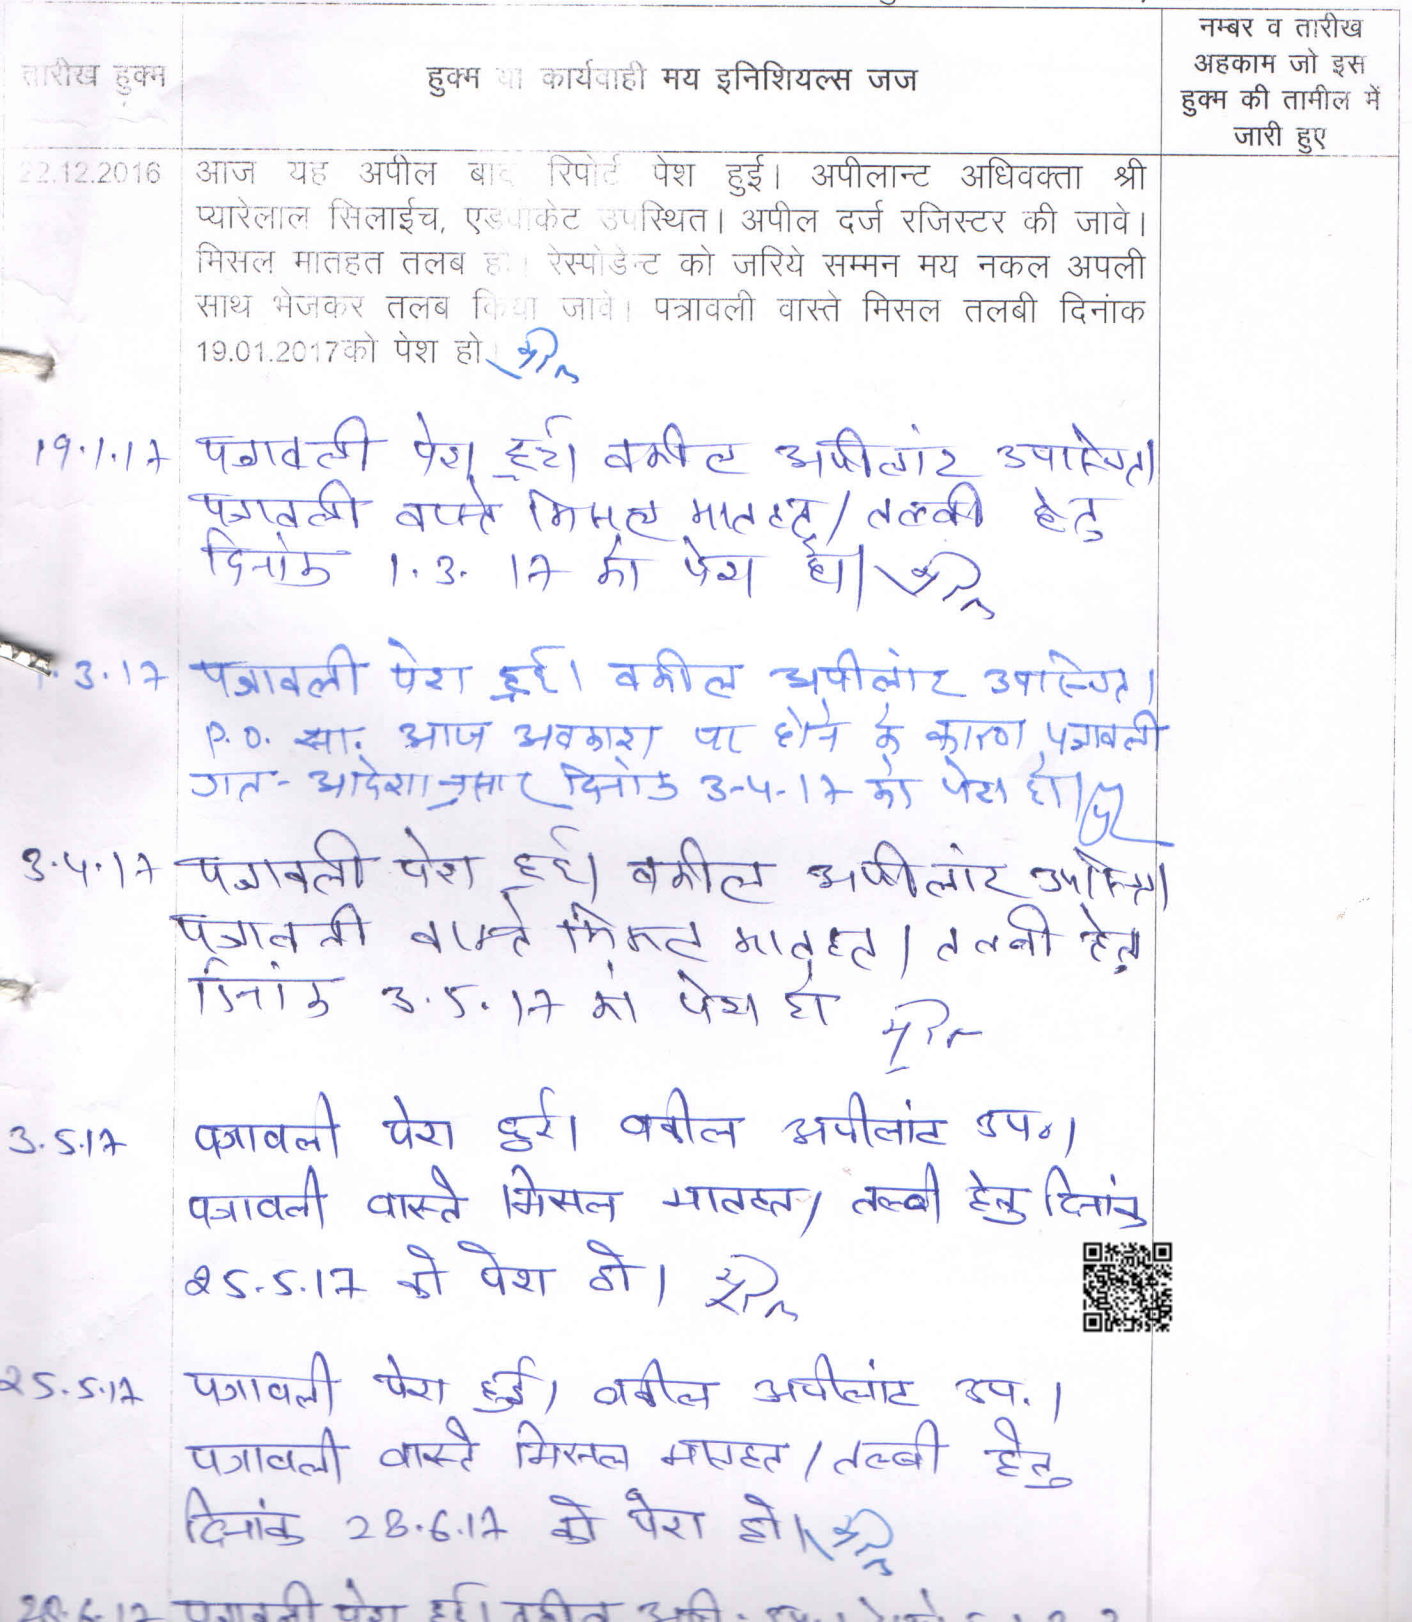 तारीख हुक्म
हुक्म या कार्यवाही मय इनिशियल्स जज
नम्बर व तारीख
अहकाम जो इस
हुक्म की तामील में
जारी हुए
22.12.2016 आज यह अपील बाद रिपोर्ट पेश हुई। अपीलान्ट अधिवक्ता श्री
प्यारेलाल सिलाईच, एडवोकेट उपस्थित। अपील दर्ज रजिस्टर की जावे।
मिसल मातहत तलब हो। रेस्पोडेन्ट को जरिये सम्मन मय नकल अपली
साथ भेजकर तलब किया जावे। पत्रावली वास्ते मिसल तलबी दिनांक
19.01.2017को पेश हो
19.1.17 पत्रावली पेश हुई। वकील अपीलांट उपस्थित।
पत्रावली वास्ते मिसल मातहत/तलबी हेतु
दिनांक 1.3.17 को पेश हो।
.3.17 पत्रावली पेश हुई। वकील अपीलांट उपस्थित।
P.O. सा. आज अवकाश पर होने के कारण पत्रावली
गत-आदेशानुसार दिनांक 3-4-17 को पेश हो।
3.4.17 पत्रावली पेश हुई। वकील अपीलांट उपस्थित।
पत्रावली वास्ते मिसल मातहत/तलबी हेतु
दिनांक 3.5.17 को पेश हो
3.5.17 पत्रावली पेश हुई। वकील अपीलांट उप०।
पत्रावली वास्ते मिसल मातहत/तल्बी हेतु दिनांक
25.5.17 को पेश हो।
25.5.17 पत्रावली पेश हुई। वकील अपीलांट उप.।
पत्रावली वास्ते मिसल मातहत/तल्बी हेतु
दिनांक 28.6.17 को पेश हो।
28.6.17 पत्रावली पेश हुई। वकील